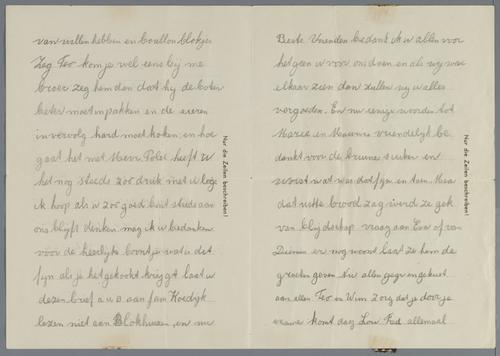 van willen hebben en bouillon blokjes
Zeg Feo kom je wel eens bij me
broer zeg hem dan dat hij de boter
beter moet inpakken en de eieren
in vervolg hard moet koken, en hoe
gaat het met Mevr Polet heeft U
het nog steeds zoo druk met U loge
ik hoop als U zoo goed bent steeds aan
ons blijft denken mag ik U bedanken
voor de heerlijke boontje wat is dit
fijn als je het gekookt krijgt laat U
dezen brief a.u.b. aan fam Koedijk
lezen niet aan Blokhuizen, en nu
Nur die Zeilen beschreiben!
Beste Vrienden bedank ik U allen voor
het geen U voor ons doen en als wij
elkaar zien dan zullen wij U alles
vergoeden. En nu eenige woorden tot
Marie en Maurits vriendelijk be
dankt voor de bruine suiker en
worst wat was dat fijn en toen
dat witte brood zag werd ze gek
van blijdschap vraag aan Eva of van
Dienen er nog woont laat ze hem de
groeten geven Nu allen gegroet en gekust
aan allen Feo en Wim Zorg dat je door je
komt dag Lou Fred allemaal
Nur die Zeilen beschreiben!